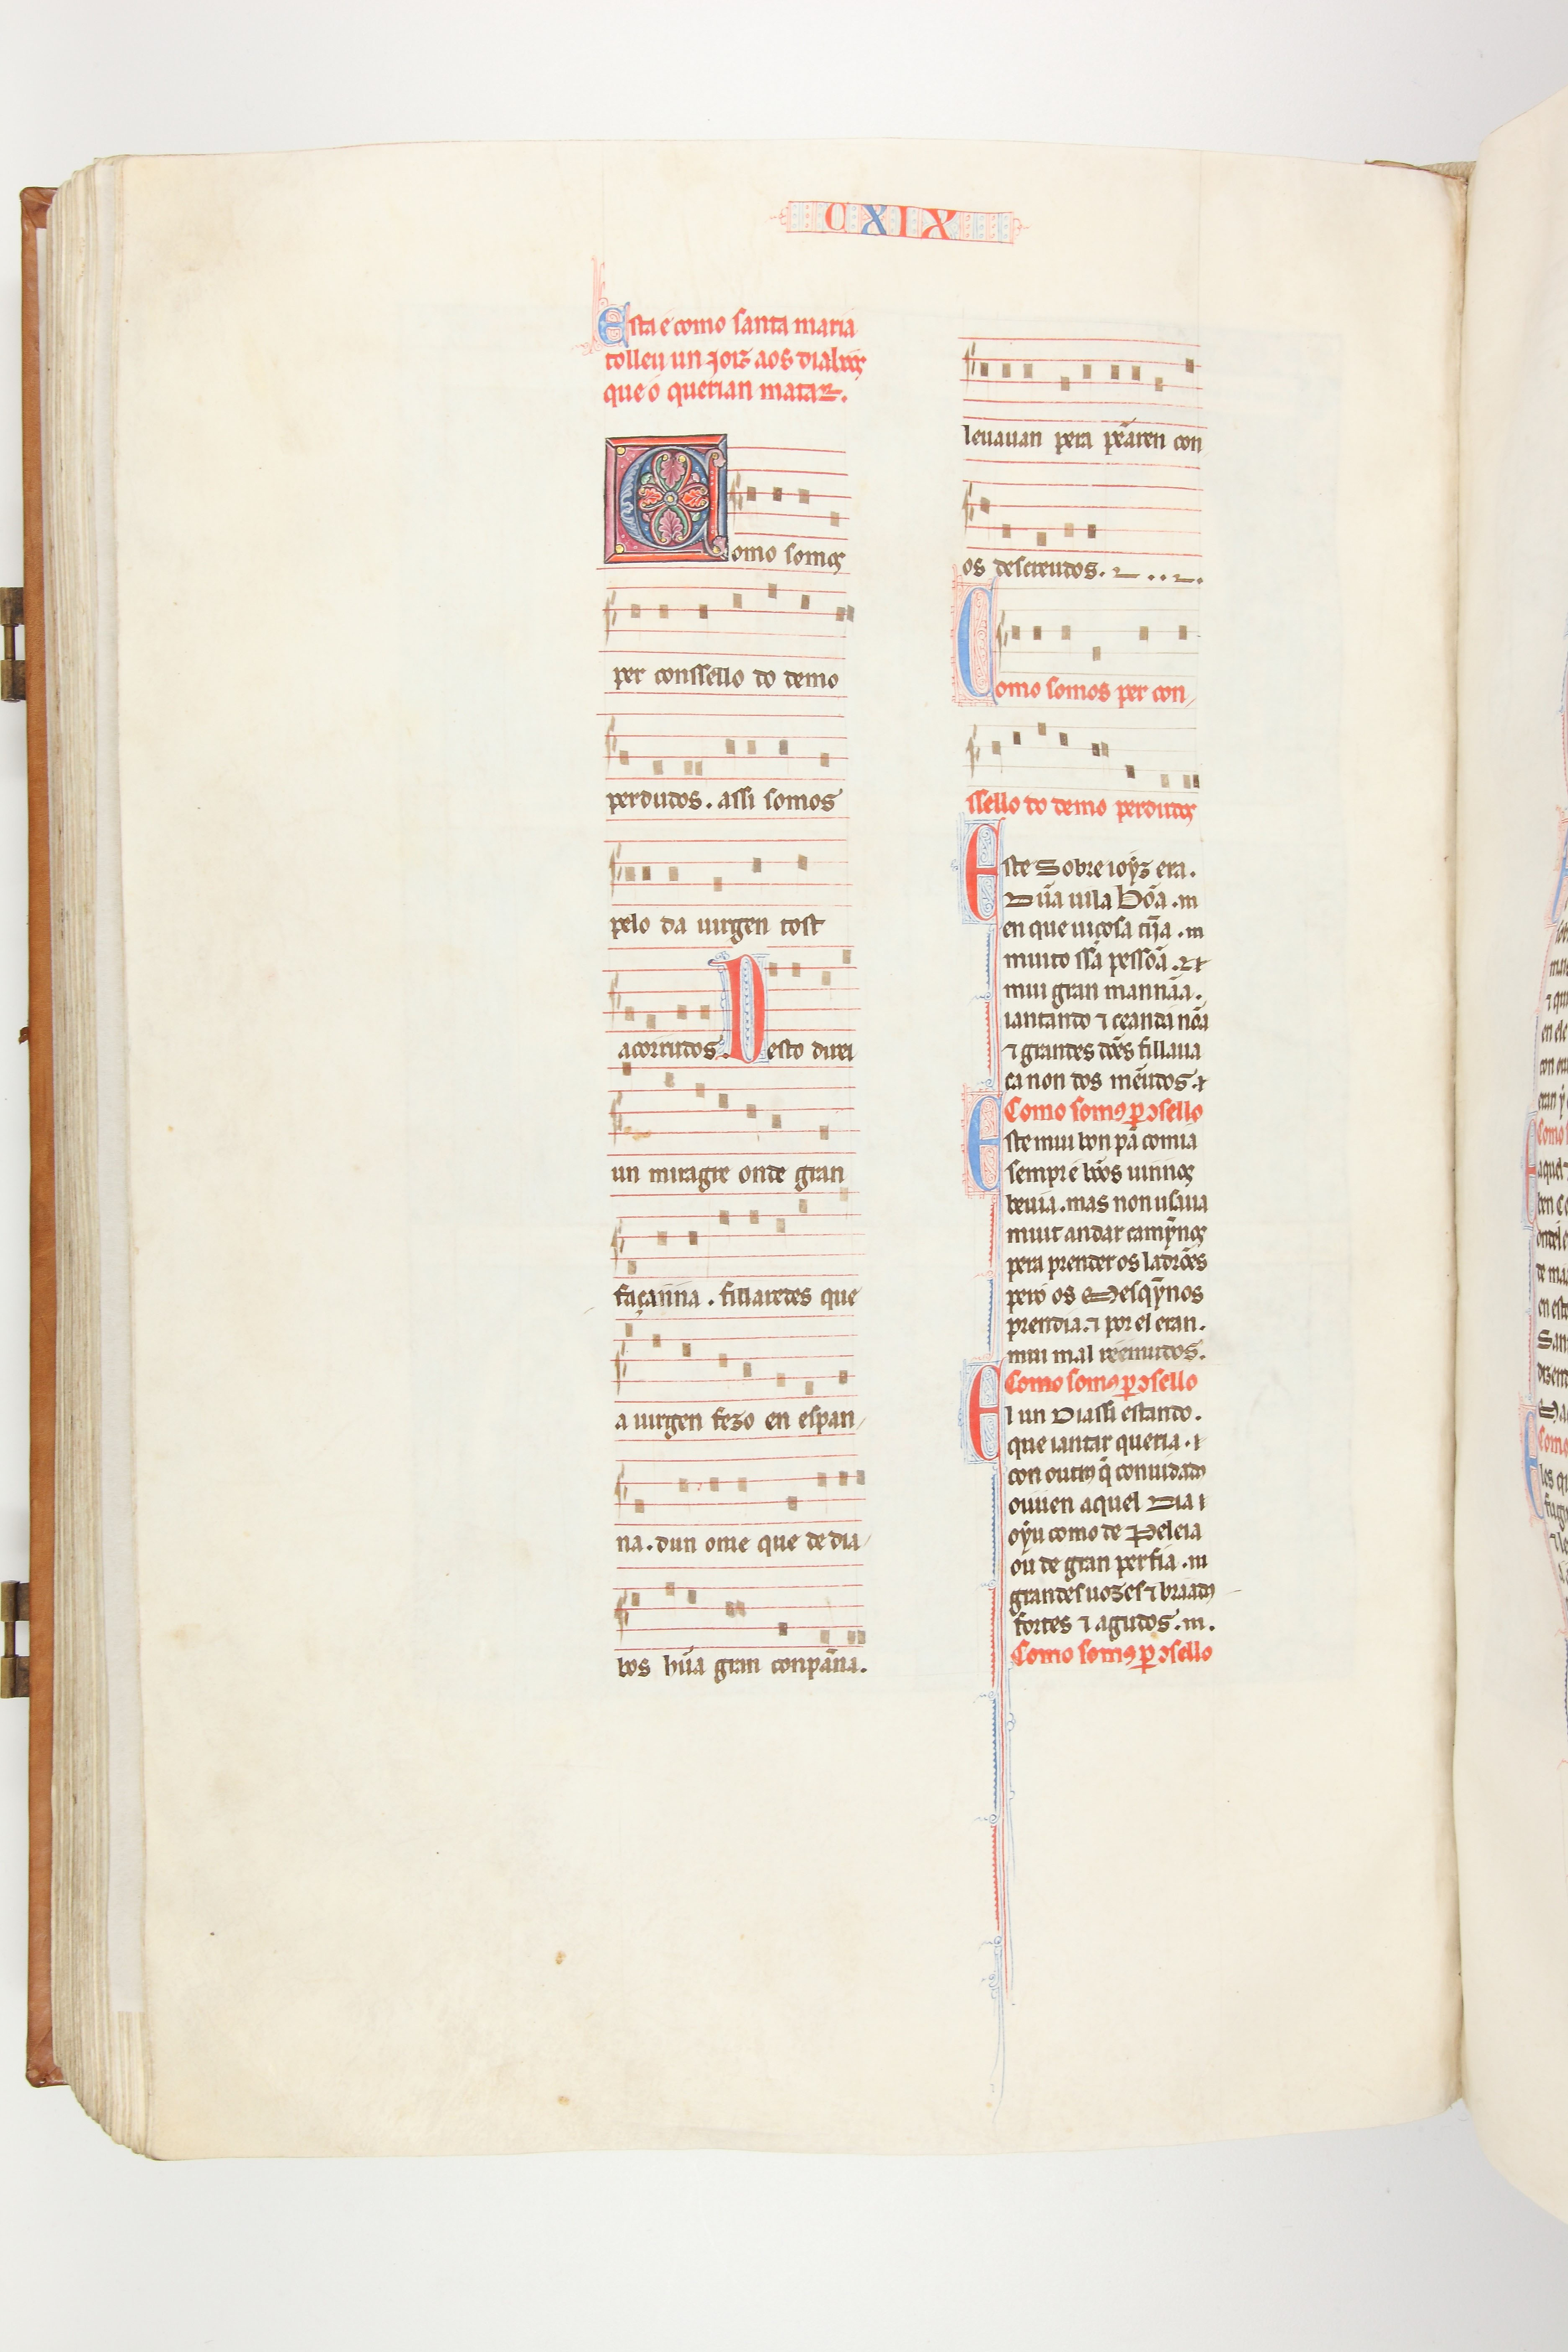 CXIX
Esta é como santa maria
tolleu un joiz aos diabos
que o querian matar.
Como somos
per conssello do demo
perdudos. assi somos
pelo da uirgen tost
acorrudos. Desto direi
un miragre onde gran
façanna. fillaredes que
a uirgen fezo en espan
na. dun ome que de dia
bos hũa gran conpãna.
leuauan pera peãren con
os descreudos.
Como somos per con
ssello do demo perdudos
Este sobre ioyz era.
Dũa uila bõa.
en que uiçosa tĩja.
muito ssa pessõa.
mui gran mannãa.
iantando ⁊ ceand a nõa
⁊ grandes dões fillaua
ca non dos mẽudos.
Como somꝰ ꝑ ↄsello
Este mui bon pã comia
sempr e bõos uinnos
beuia. mas non usaua
muit andar camỹnos
pera prender os ladrões
pero os Mesqỹnos
prendia. ⁊ por el eran.
mui mal reẽmudos.
Como somꝰ ꝑ ↄsello
El un Dia ssi estando.
que iantar queria.
con outro q̃ conuidado
ouuen aquel Dia
oyu como de Peleia
ou de gran perfia.
grandes uozes ⁊ braados
fortes ⁊ agudos.
Como somꝰ ꝑ ↄsello